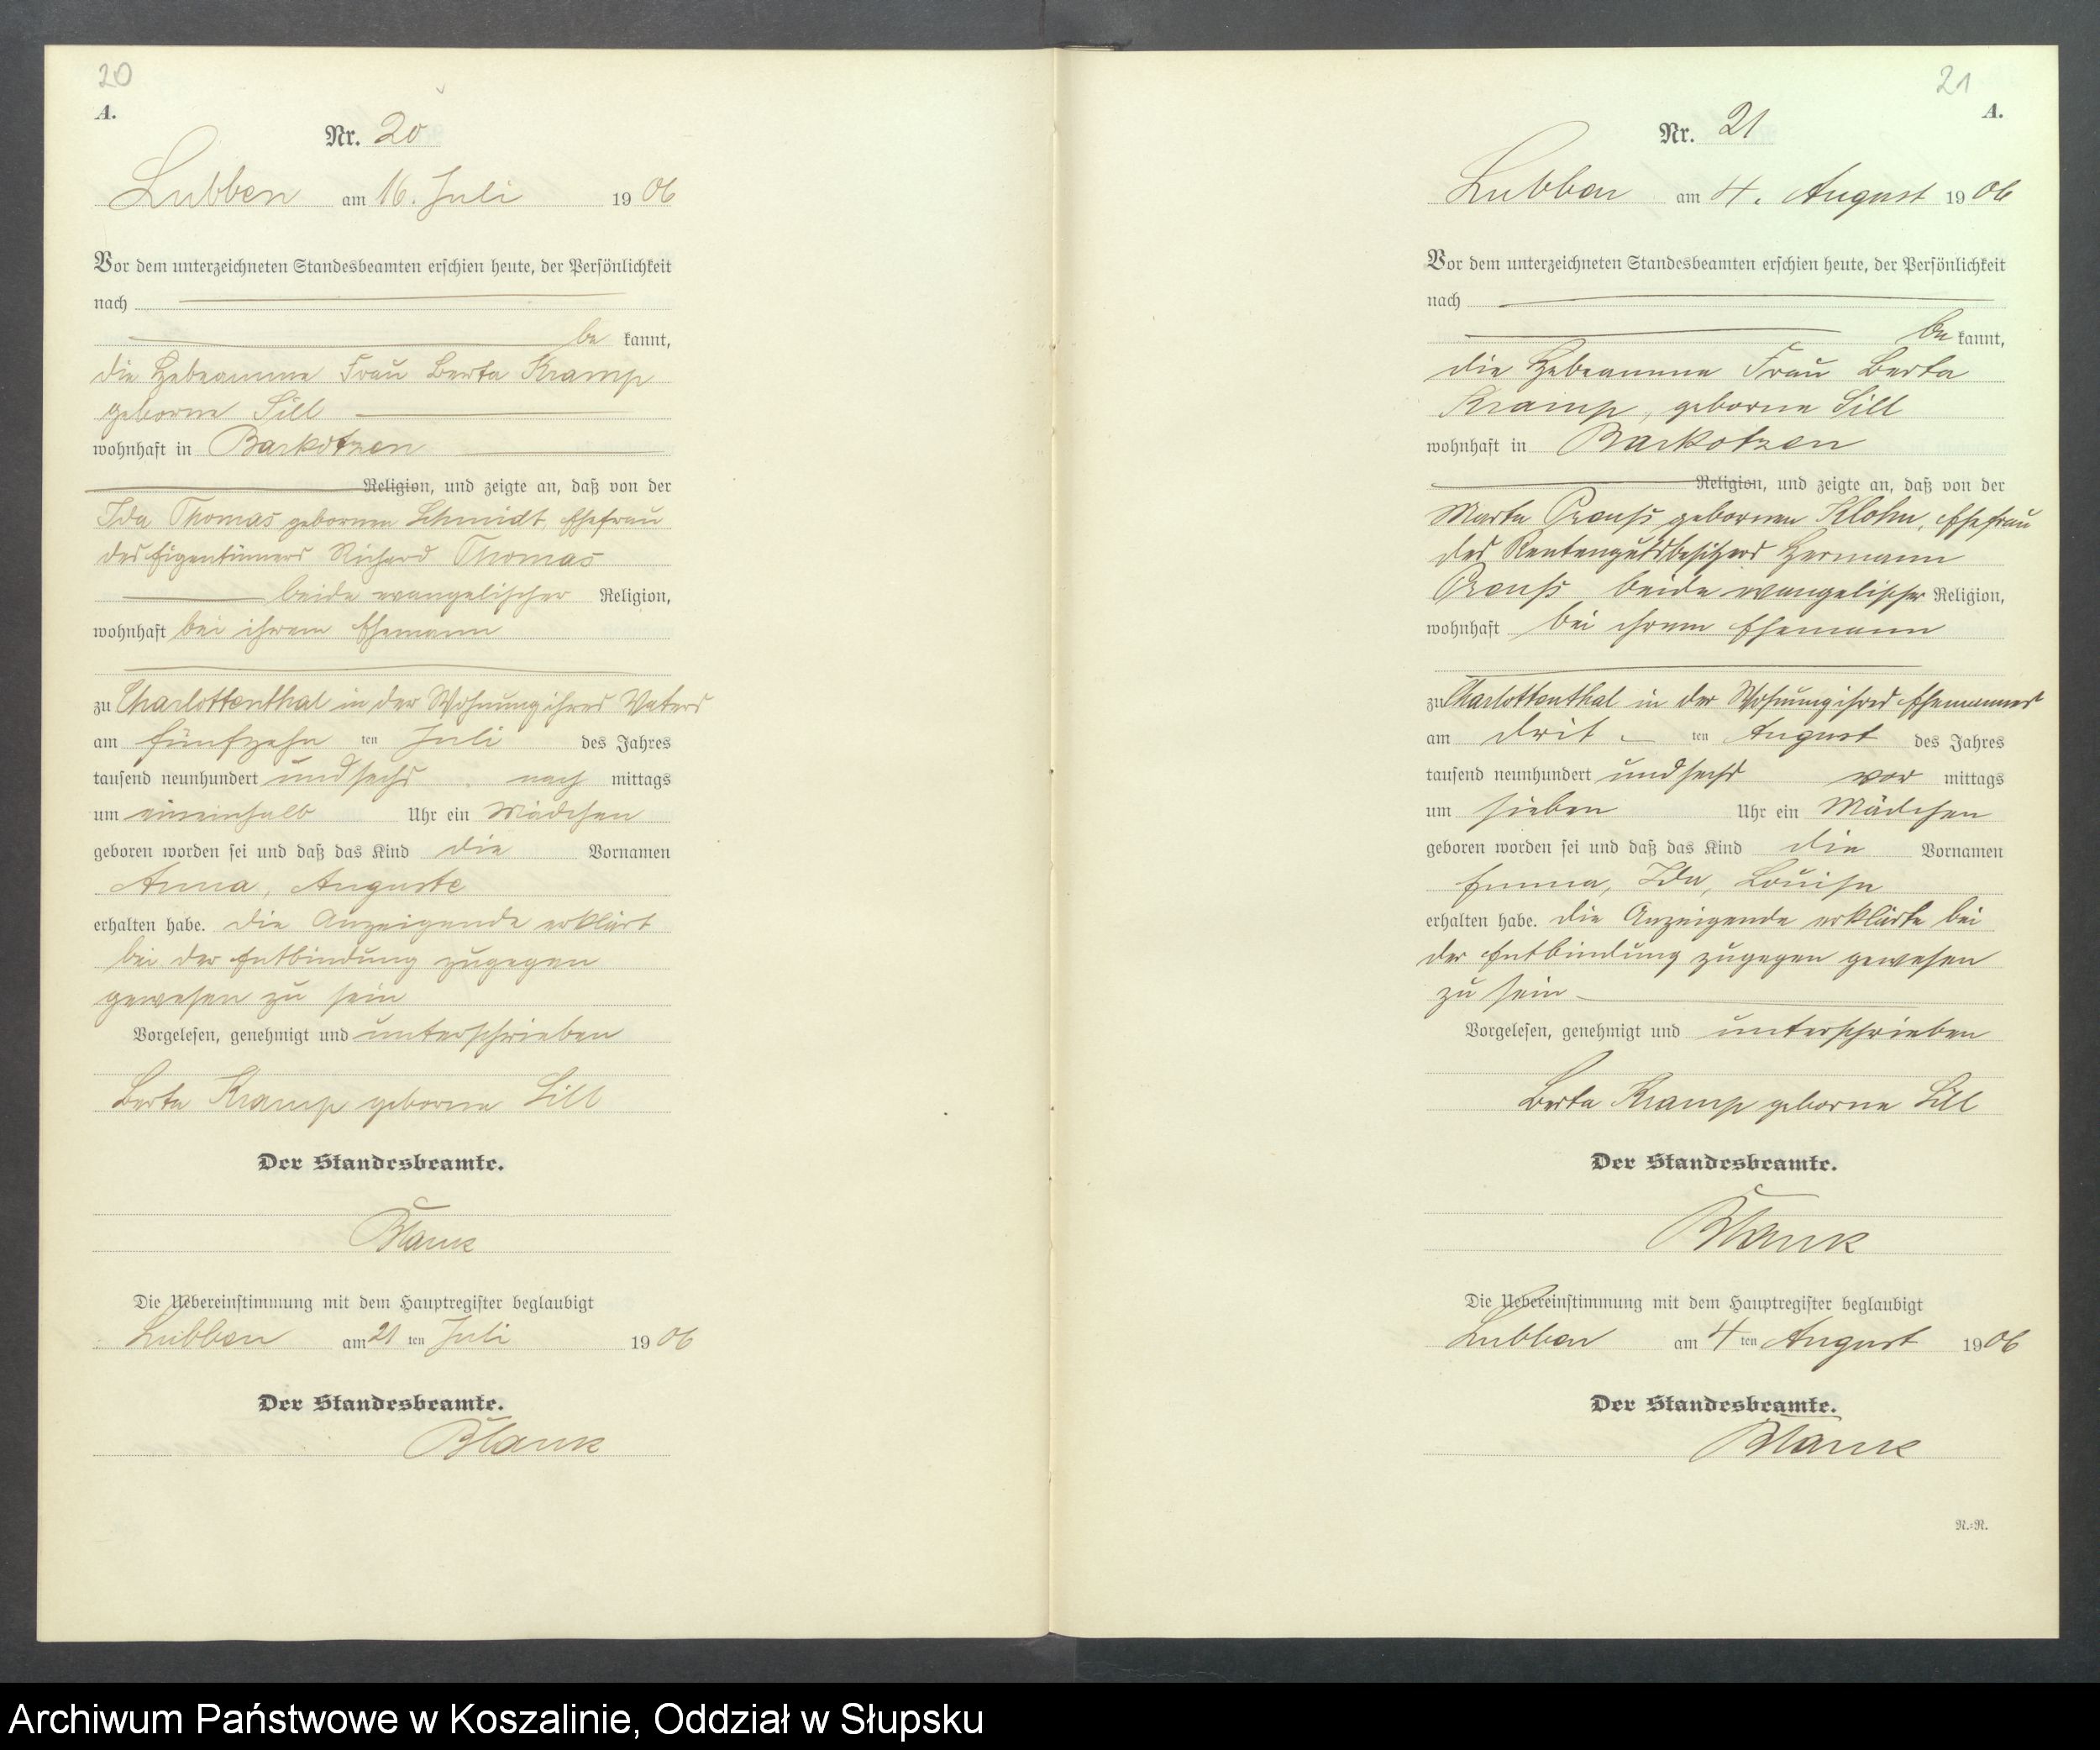 20
A.
Nr. 20
Lubben am 16. Juli 1906
Vor dem unterzeichneten Standesbeamten erschien heute, der Persönlichkeit
nach
be kannt,
die Hebeamme Frau Berta Kramp
geborne Sill
wohnhaft in Barkotzen
Religion, und zeigte an, daß von der
Ida Thomas gebornen Schmidt, Ehefrau
des Eigentümers Richard Thomas
beide evangelischer Religion,
wohnhaft bei ihrem Ehemann
zu Charlottenthal in der Wohnung ihres Vaters
am fünfzehn ten Juli des Jahres
tausend neunhundert und sechs nach mittags
um eineinhalb Uhr ein Mädchen
geboren worden sei und daß das Kind die Vornamen
Anna, Auguste
erhalten habe. Die Anzeigende erklärt
bei der Entbindung zugegen
gewesen zu sein
Vorgelesen, genehmigt und unterschrieben
Berta Kramp geborne Sill
Der Standesbeamte.
Blank
Die Uebereinstimmung mit dem Hauptregister beglaubigt
Lubben am 21 ten Juli 1906
Der Standesbeamte.
Blank
21
A.
Nr. 21
Lubben am 4. August 1906
Vor dem unterzeichneten Standesbeamten erschien heute, der Persönlichkeit
nach
be kannt,
die Hebeamme Frau Berta
Kramp, geborne Sill
wohnhaft in Barkotzen
Religion, und zeigte an, daß von der
Marta gebornen Ehefrau
des Rentengutsbesitzers Hermann
beide evangelischer Religion,
wohnhaft bei ihrem Ehemann
zu Charlottenthal in der Wohnung ihres Ehemannes
am drit ten August des Jahres
tausend neunhundert und sechs vor mittags
um sieben Uhr ein Mädchen
geboren worden sei und daß das Kind die Vornamen
Emma, Ida, Louise
erhalten habe. Die Anzeigende erklärte bei
der Entbindung zugegen gewesen
zu sein
Vorgelesen, genehmigt und unterschrieben
Berta Kramp geborne Sill
Der Standesbeamte.
Blank
Die Uebereinstimmung mit dem Hauptregister beglaubigt
Lubben am 4 ten August 1906
Der Standesbeamte.
Blank
R.=R.
Archiwum Państwowe w Koszalinie, Oddział w Słupsku